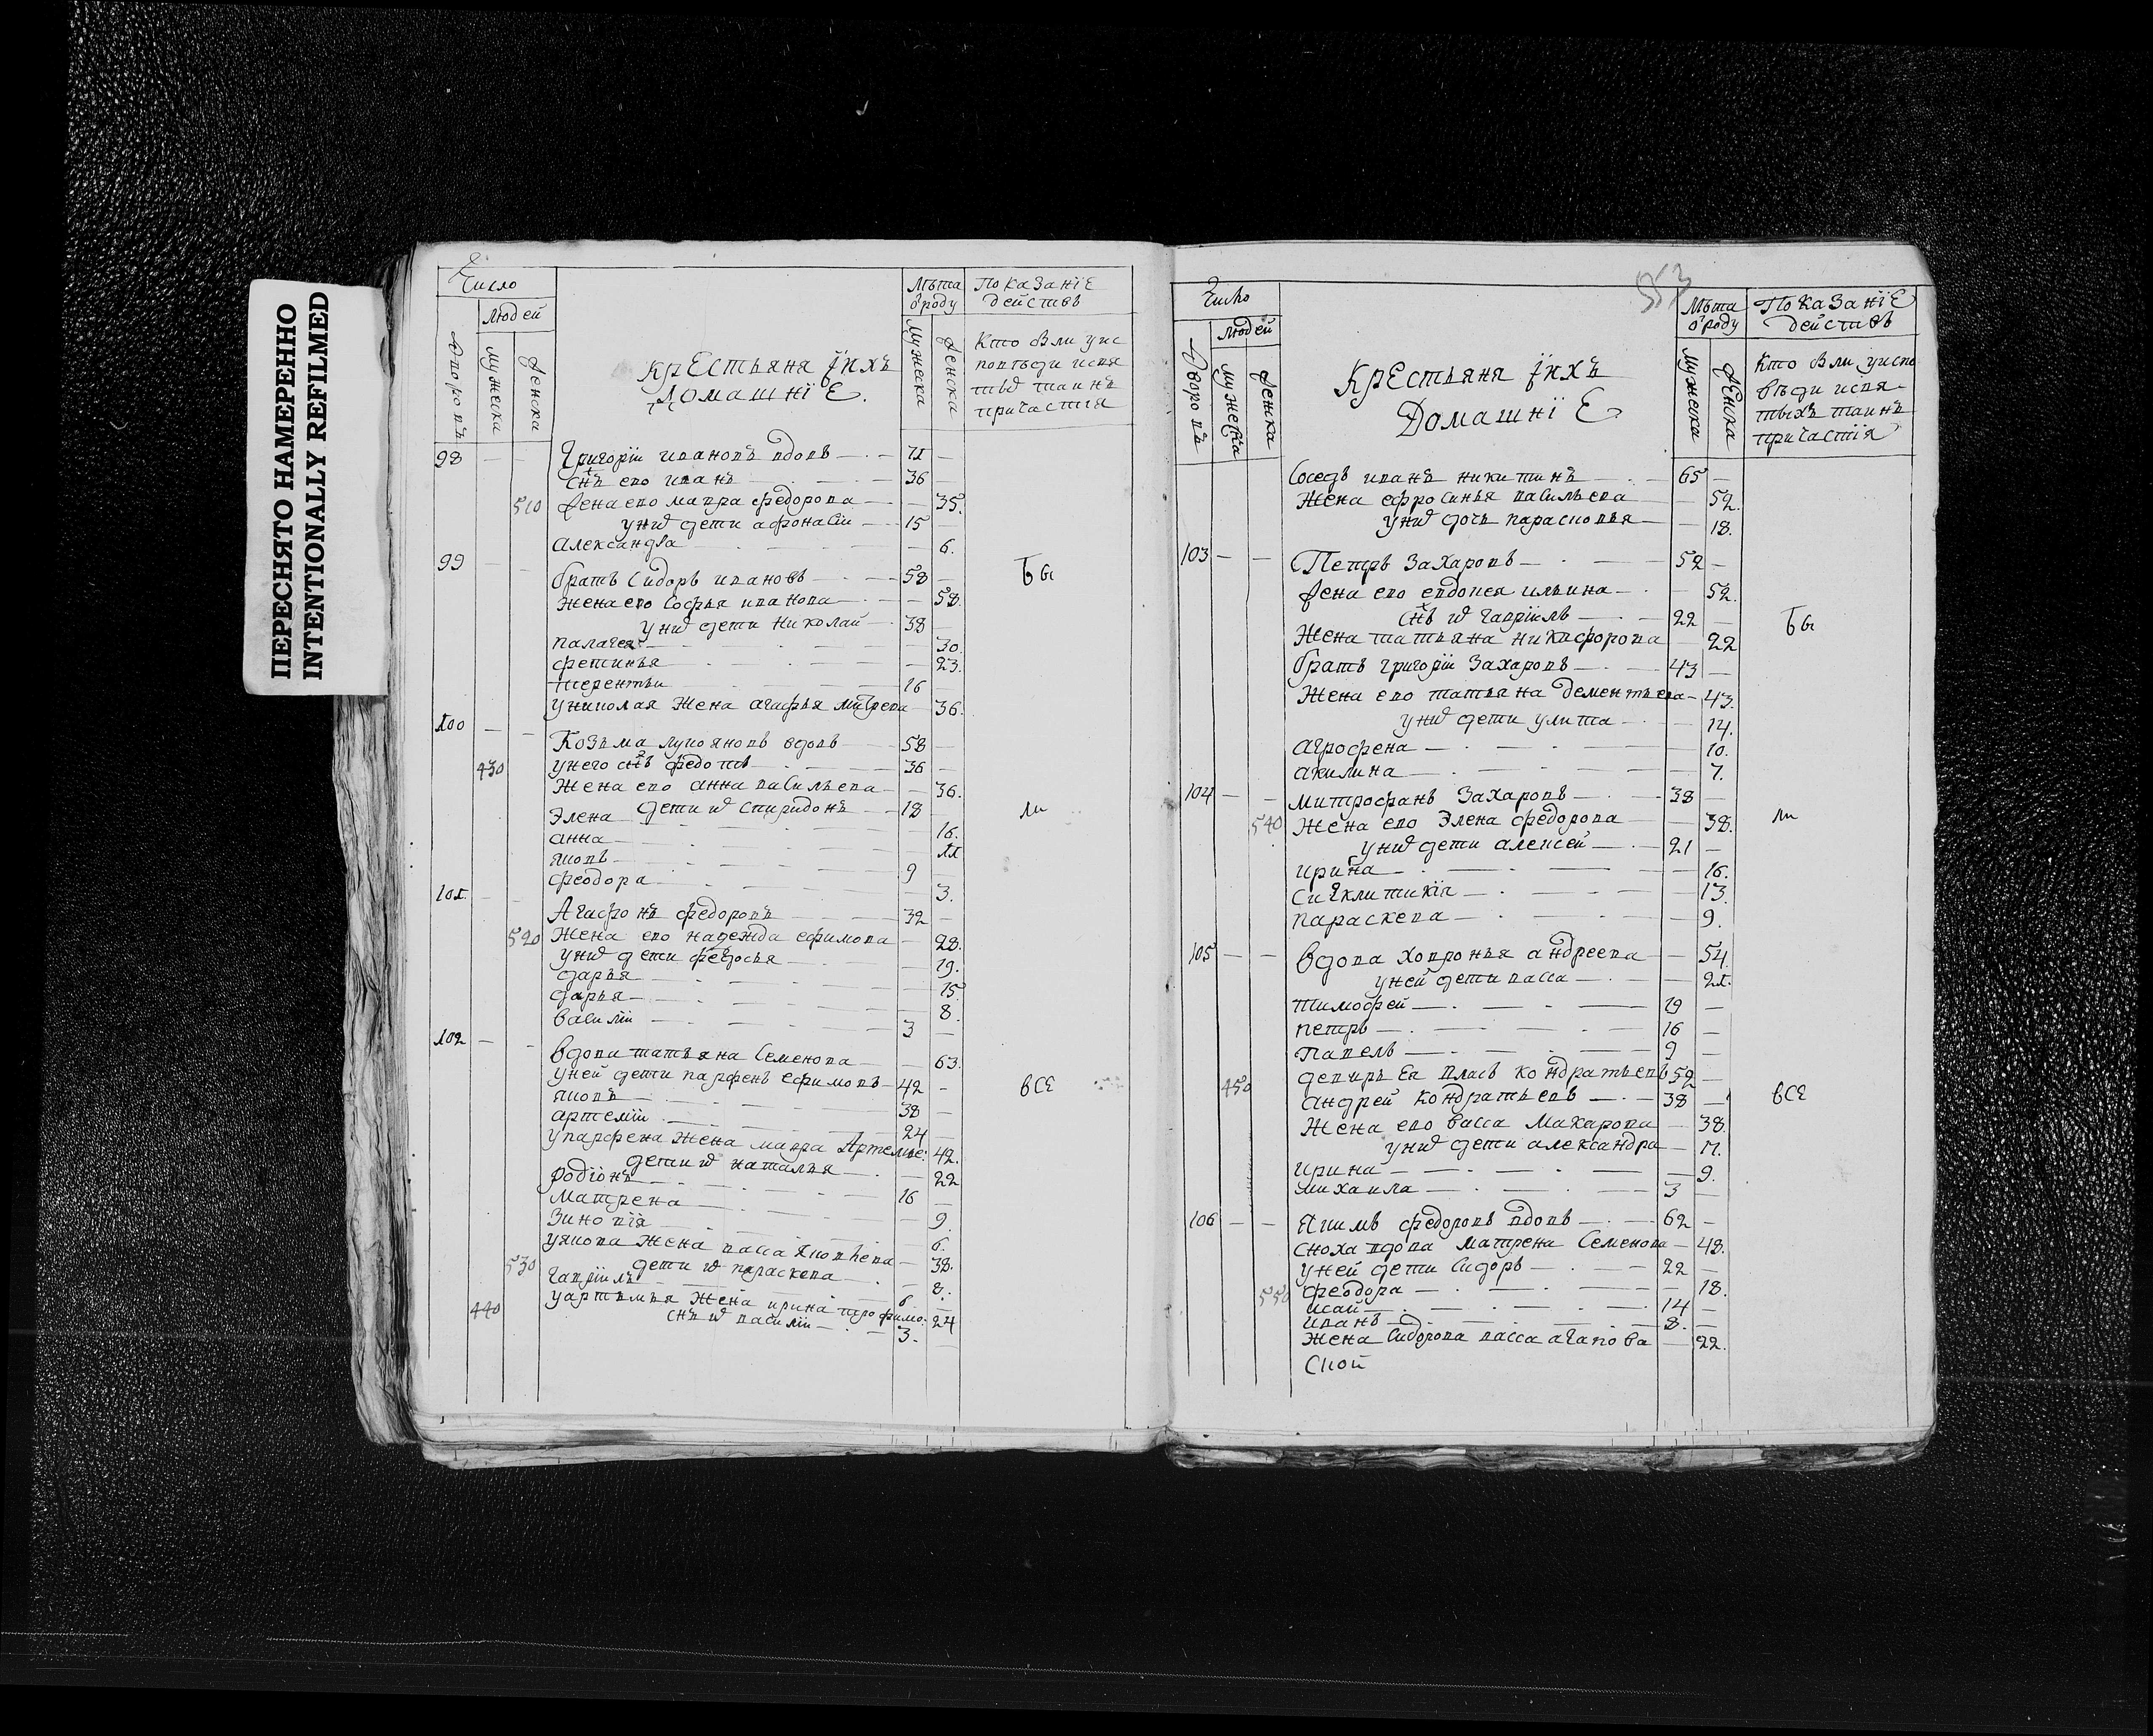 ПЕРЕСНЯТО НАМЕРЕННО
INTENTIONALLY REFILMED
Число
Людей
дворовъ
мужеска
женска
Крестьяня ихъ
Домашніе.
Лѣта
ѿроду
мужеска
женска
Показаніе
действъ
Кто Были уис
поведи исвя
тыѿ таинъ
причастія
98 — — Григоріи ивановъ вдовъ — 71 —
снъ ево иванъ — 36 —
510 жена ево мавра федорова — — 35.
униѿ дети афонасіи — 15 —
александра — — 6.
99 — — братъ Сидоръ ивановъ — 58 —
жена ево Софья иванова — — 58.
униѿ дети николай — 38 —
палагея — — 30.
фетинья — — 23.
терентьи — 16 —
униколая жена агафья — 36.
100 — — Козьма лукояновъ вдовъ — 58 —
430 унего снъ федотъ — 36 —
жена ево анна васильева — — 36.
дети иѿ спиридонъ — 18 —
элена — — 16.
анна — — 11
яковъ — 9
феодора — — 3.
101. — — Агафонъ федоровъ — 32 —
520 жена ево надежда ефимова — 28.
униѿ дети федосья — 19.
дарья — 15
дарья — 8.
василіи — 3 —
102 — — вдова татьяна Семенова — 63.
уней дети парфенъ ефимовъ — 42 —
яковъ — 38 —
артеміи — 24 —
упарфена жена мавра Артемье: 42.
дети иѿ наталья — 22
родіонъ — 16 —
матрена — 9.
Зиновія — 6.
уякова жена васса яковлева — 38.
530 дети иѿ параскева — 8.
гавріилъ — 6 —
уартемья жена ирина трофимо: 24
440 снъ иѿ василіи — 3. —
Бы
ли
все
553
Число
Людей
дворовъ
мужеска
женска
Крестьяня ихъ
Домашніе
Лѣта
ѿроду
мужеска
женска
Показаніе
действъ
Кто Были уиспо
вѣди исвя
тыхъ таинъ
причастія
Соседъ иванъ никитинъ — 65 —
жена ефросинья васильева — 52.
униѿ дочь парасковья — — 18.
103 — — Петръ Захаровъ — 52 —
жена ево евдокея ильина — — 52.
снъ иѿ гавріилъ — 22 —
жена татьяна никифорова 22
братъ григоріи Захаровъ — 43 —
жена ево татьяна дементьева — 43.
униѿ дети улита — — 14.
агрофена — — 10.
акилина — — 7.
104 — — митрофанъ Захаровъ — 38 —
540 жена ево элена федорова — 38.
униѿ дети алексей — 21 —
ирина — — 16.
сигклитикіа — — 13.
параскева — — 9.
105 — — вдова ховронья андреева — 54
уней дети васса — — 21.
тимофей — 19 —
петръ — 16 —
павелъ — 9 —
450 власъ кондратьевъ 52 —
андрей кондратьевъ — 38 —
жена ево васса Макарова — 38.
униѿ дети александра — 11.
ирина — — 9.
михаила — 3 —
106 — — якимъ федоровъ вдовъ — 62 —
сноха вдова матрена Семенова — 48.
уней дети Сидоръ — 22 —
550 феодора — — 18.
исай — 14 —
иванъ — 8. —
жена Сидорова васса агапова — 22.
Бы
ли
все